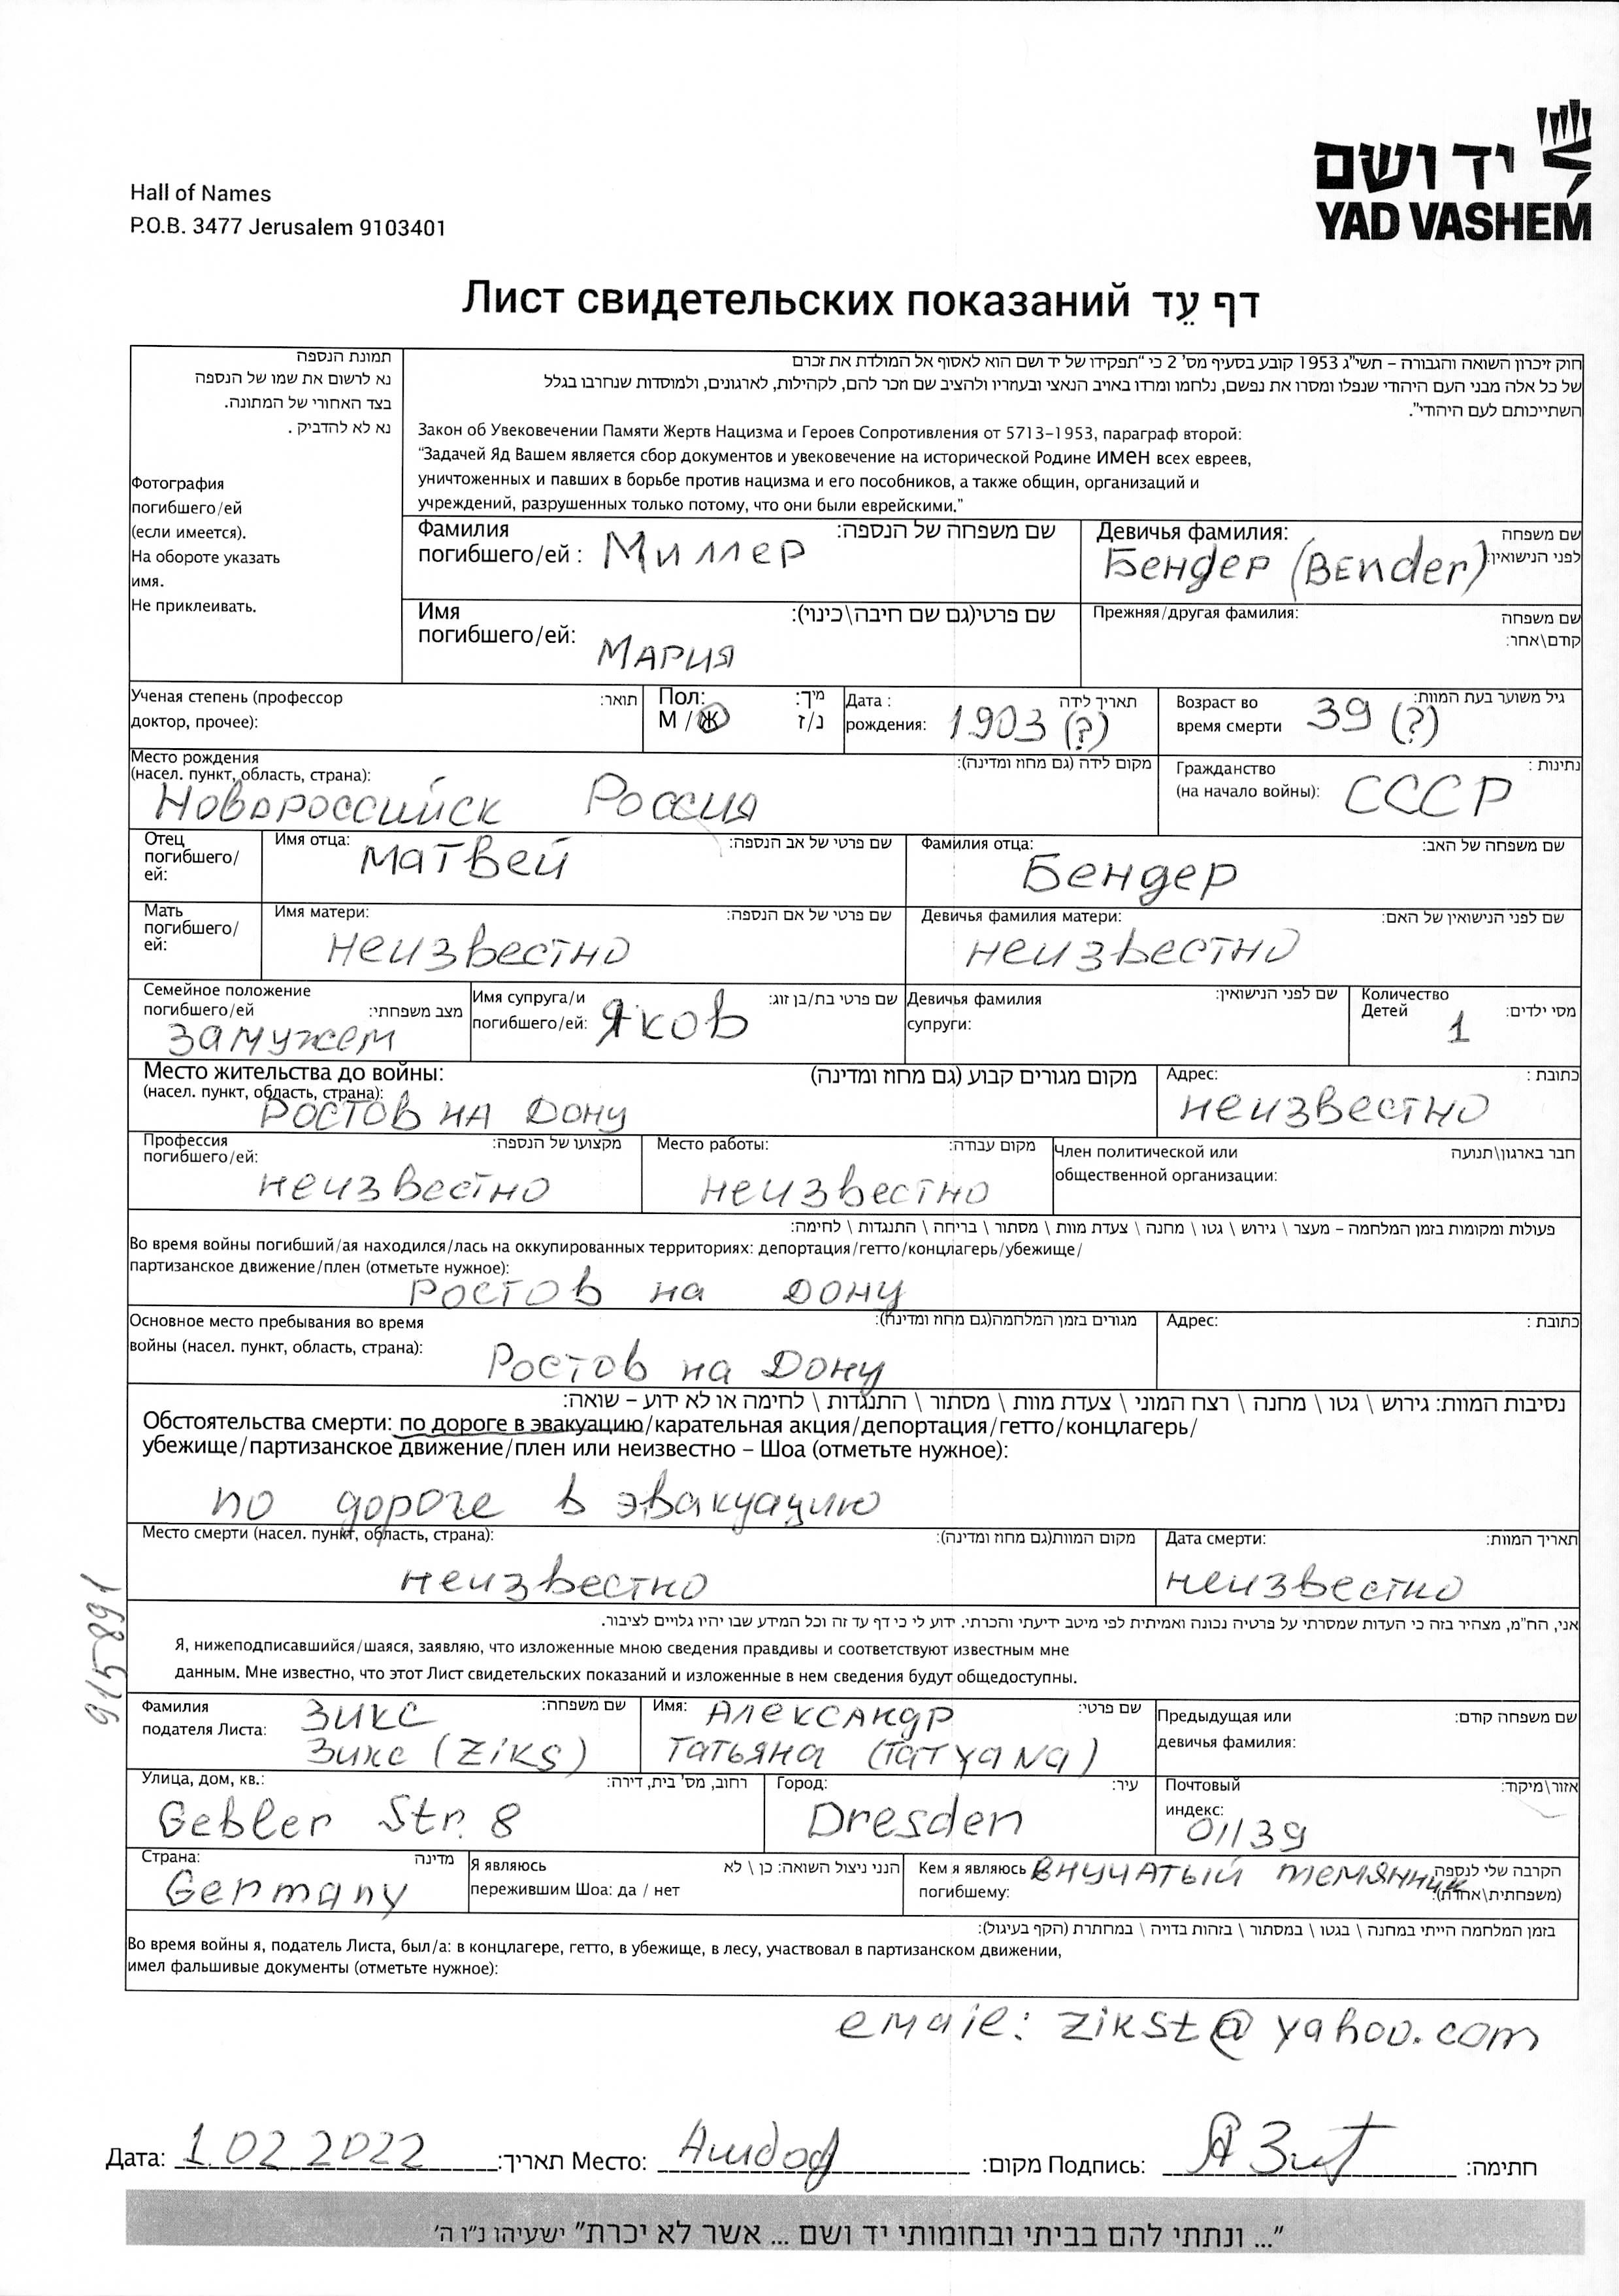 Hall of Names
P.O.B. 3477 Jerusalem 9103401
יד ושם
YAD VASHEM
Лист свидетельских показаний דף עֵד
תמונת הנספה
נא לרשום את שמו של הנספה
בצד האחורי של המתונה.
נא לא להדביק .
Фотография
погибшего/ей
(если имеется).
На обороте указать
имя.
Не приклеивать.
חוק זיכרון השואה והגבורה – תשי"ג 1953 קובע בסעיף מס' 2 כי "תפקידו של יד ושם הוא לאסוף אל המולדת את זכרם
של כל אלה מבני העם היהודי שנפלו ומסרו את נפשם, נלחמו ומרדו באויב הנאצי ובעוזריו ולהציב שם וזכר להם, לקהילות, לארגונים, ולמוסדות שנחרבו בגלל
השתייכותם לעם היהודי".
Закон об Увековечении Памяти Жертв Нацизма и Героев Сопротивления от 5713–1953, параграф второй:
"Задачей Яд Вашем является сбор документов и увековечение на исторической Родине имен всех евреев,
уничтоженных и павших в борьбе против нацизма и его пособников, а также общин, организаций и
учреждений, разрушенных только потому, что они были еврейскими."
Фамилия שם משפחה של הנספה:
погибшего/ей : Миллер
Девичья фамилия: שם משפחה
לפני הנישואין:
Бендер (Bender)
Имя שם פרטי(גם שם חיבה\כינוי):
погибшего/ей: Мария
Прежняя/другая фамилия: שם משפחה
קודם\אחר:
Ученая степень (профессор תואר:
доктор, прочее):
Пол: מין:
М / Ж נ/ז
Дата : תאריך לידה
рождения: 1903 (?)
Возраст во גיל משוער בעת המוות:
время смерти 39 (?)
Место рождения
(насел. пункт, область, страна): מקום לידה (גם מחוז ומדינה):
Новороссийск Россия
Гражданство נתינות :
(на начало войны): СССР
Отец
погибшего/
ей:
Имя отца: Матвей שם פרטי של אב הנספה:
Фамилия отца: שם משפחה של האב:
Бендер
Мать
погибшего/
ей:
Имя матери: שם פרטי של אם הנספה:
неизвестно
Девичья фамилия матери: שם לפני הנישואין של האם:
неизвестно
Семейное положение
погибшего/ей מצב משפחתי:
замужем
Имя супруга/и שם פרטי בת/בן זוג:
погибшего/ей: Яков
Девичья фамилия שם לפני הנישואין:
супруги:
Количество
Детей מסי ילדים:
1
Место жительства до войны: מקום מגורים קבוע (גם מחוז ומדינה)
(насел. пункт, область, страна):
Ростов на Дону
Адрес: כתובת :
неизвестно
Профессия מקצועו של הנספה:
погибшего/ей:
неизвестно
Место работы: מקום עבודה:
неизвестно
Член политической или חבר בארגון\תנועה
общественной организации:
פעולות ומקומות בזמן המלחמה – מעצר \ גירוש \ גטו \ מחנה \ צעדת מוות \ מסתור \ בריחה \ התנגדות \ לחימה:
Во время войны погибший/ая находился/лась на оккупированных территориях: депортация/гетто/концлагерь/убежище/
партизанское движение/плен (отметьте нужное):
Ростов на Дону
Основное место пребывания во время מגורים בזמן המלחמה(גם מחוז ומדינה):
войны (насел. пункт, область, страна): Ростов на Дону
Адрес: כתובת :
נסיבות המוות: גירוש \ גטו \ מחנה \ רצח המוני \ צעדת מוות \ מסתור \ התנגדות \ לחימה או לא ידוע – שואה:
Обстоятельства смерти: по дороге в эвакуацию/карательная акция/депортация/гетто/концлагерь/
убежище/партизанское движение/плен или неизвестно – Шоа (отметьте нужное):
по дороге в эвакуацию
Место смерти (насел. пункт, область, страна): מקום המוות(גם מחוז ומדינה):
неизвестно
Дата смерти: תאריך המוות:
неизвестно
915891
אני, הח"מ, מצהיר בזה כי העדות שמסרתי על פרטיה נכונה ואמיתית לפי מיטב ידיעתי והכרתי. ידוע לי כי דף עד זה וכל המידע שבו יהיו גלויים לציבור.
Я, нижеподписавшийся/шаяся, заявляю, что изложенные мною сведения правдивы и соответствуют известным мне
данным. Мне известно, что этот Лист свидетельских показаний и изложенные в нем сведения будут общедоступны.
Фамилия שם משפחה:
подателя Листа: Зикс
Зикс (Ziks)
Имя: Александр שם פרטי:
Татьяна (Tatyana)
Предыдущая или שם משפחה קודם:
девичья фамилия:
Улица, дом, кв.: רחוב, מס' בית, דירה:
Gebler Str. 8
Город: עיר:
Dresden
Почтовый אזור\מיקוד:
индекс:
01139
Страна: מדינה
Germany
Я являюсь הנני ניצול השואה: כן \ לא
пережившим Шоа: да / нет
Кем я являюсь внучатый племянник הקרבה שלי לנספה
погибшему: (משפחתית\אחרת):
בזמן המלחמה הייתי במחנה \ בגטו \ במסתור \ בזהות בדויה \ במחתרת (הקף בעיגול):
Во время войны я, податель Листа, был/а: в концлагере, гетто, в убежище, в лесу, участвовал в партизанском движении,
имел фальшивые документы (отметьте нужное):
email: zikst@yahoo.com
Дата: 1.02.2022 תאריך: Место: Ашдод מקום: Подпись: חתימה:
"... ונתתי להם בביתי ובחומותי יד ושם ... אשר לא יכרת" ישעיהו נ"ו ה'